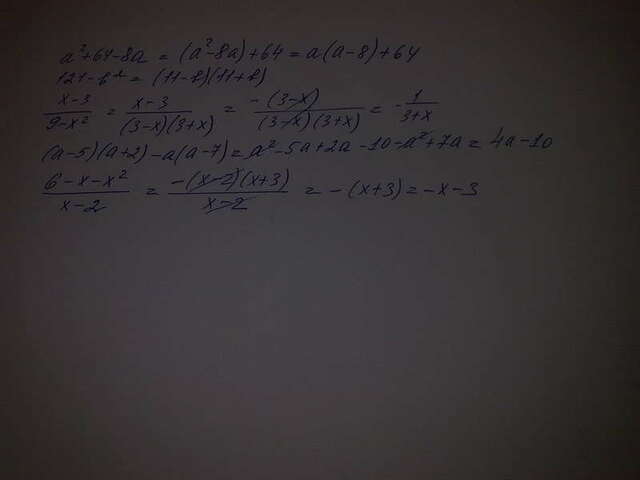 a²+64-8a = (a²-8a)+64 = a(a-8)+64
121-b² = (11-b)(11+b)
x-3/9-x² = x-3/(3-x)(3+x) = -(3-x)/(3-x)(3+x) = -1/3+x
(a-5)(a+2)-a(a-7)=a²-5a+2a-10-a²+7a=4a-10
6-x-x²/x-2 = -(x-2)(x+3)/x-2 = -(x+3)=-x-3